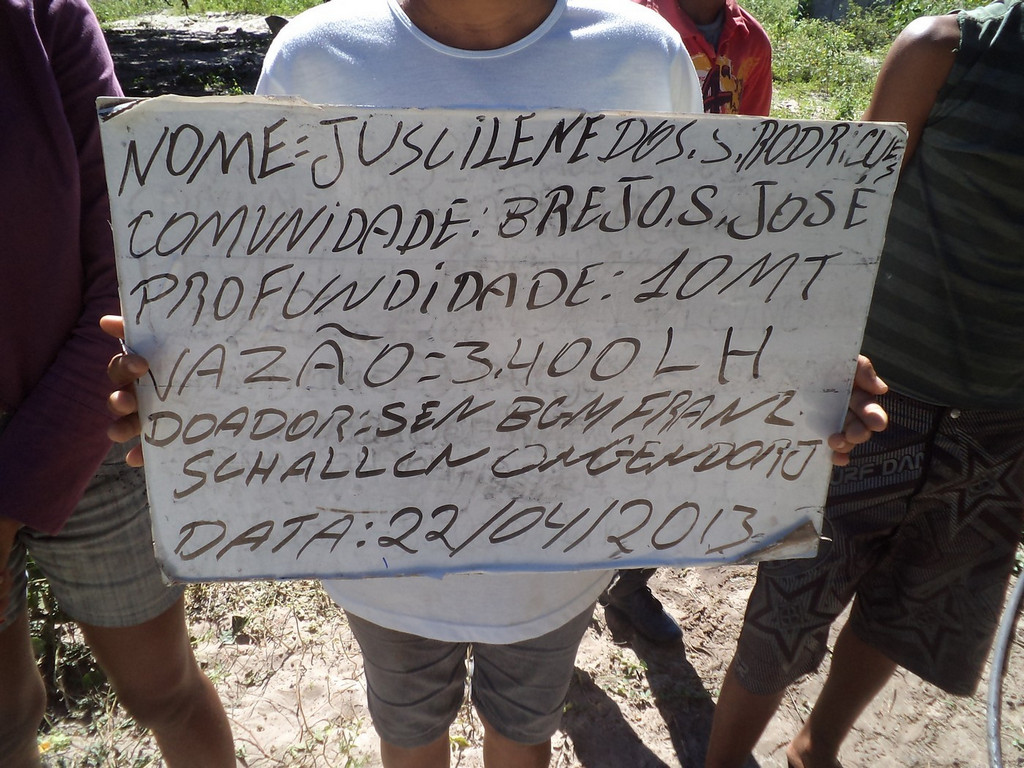 NOME=JUSCILENE DOS.S.RODRIGUES
COMUNIDADE: BREJO.S.JOSÉ
PROFUNDIDADE: 10MT
VAZÃO=3.400 L H
DOADOR:SEN BGM FRANZ.
SCHALLCN ONGENDORJ
DATA:22/04/2013